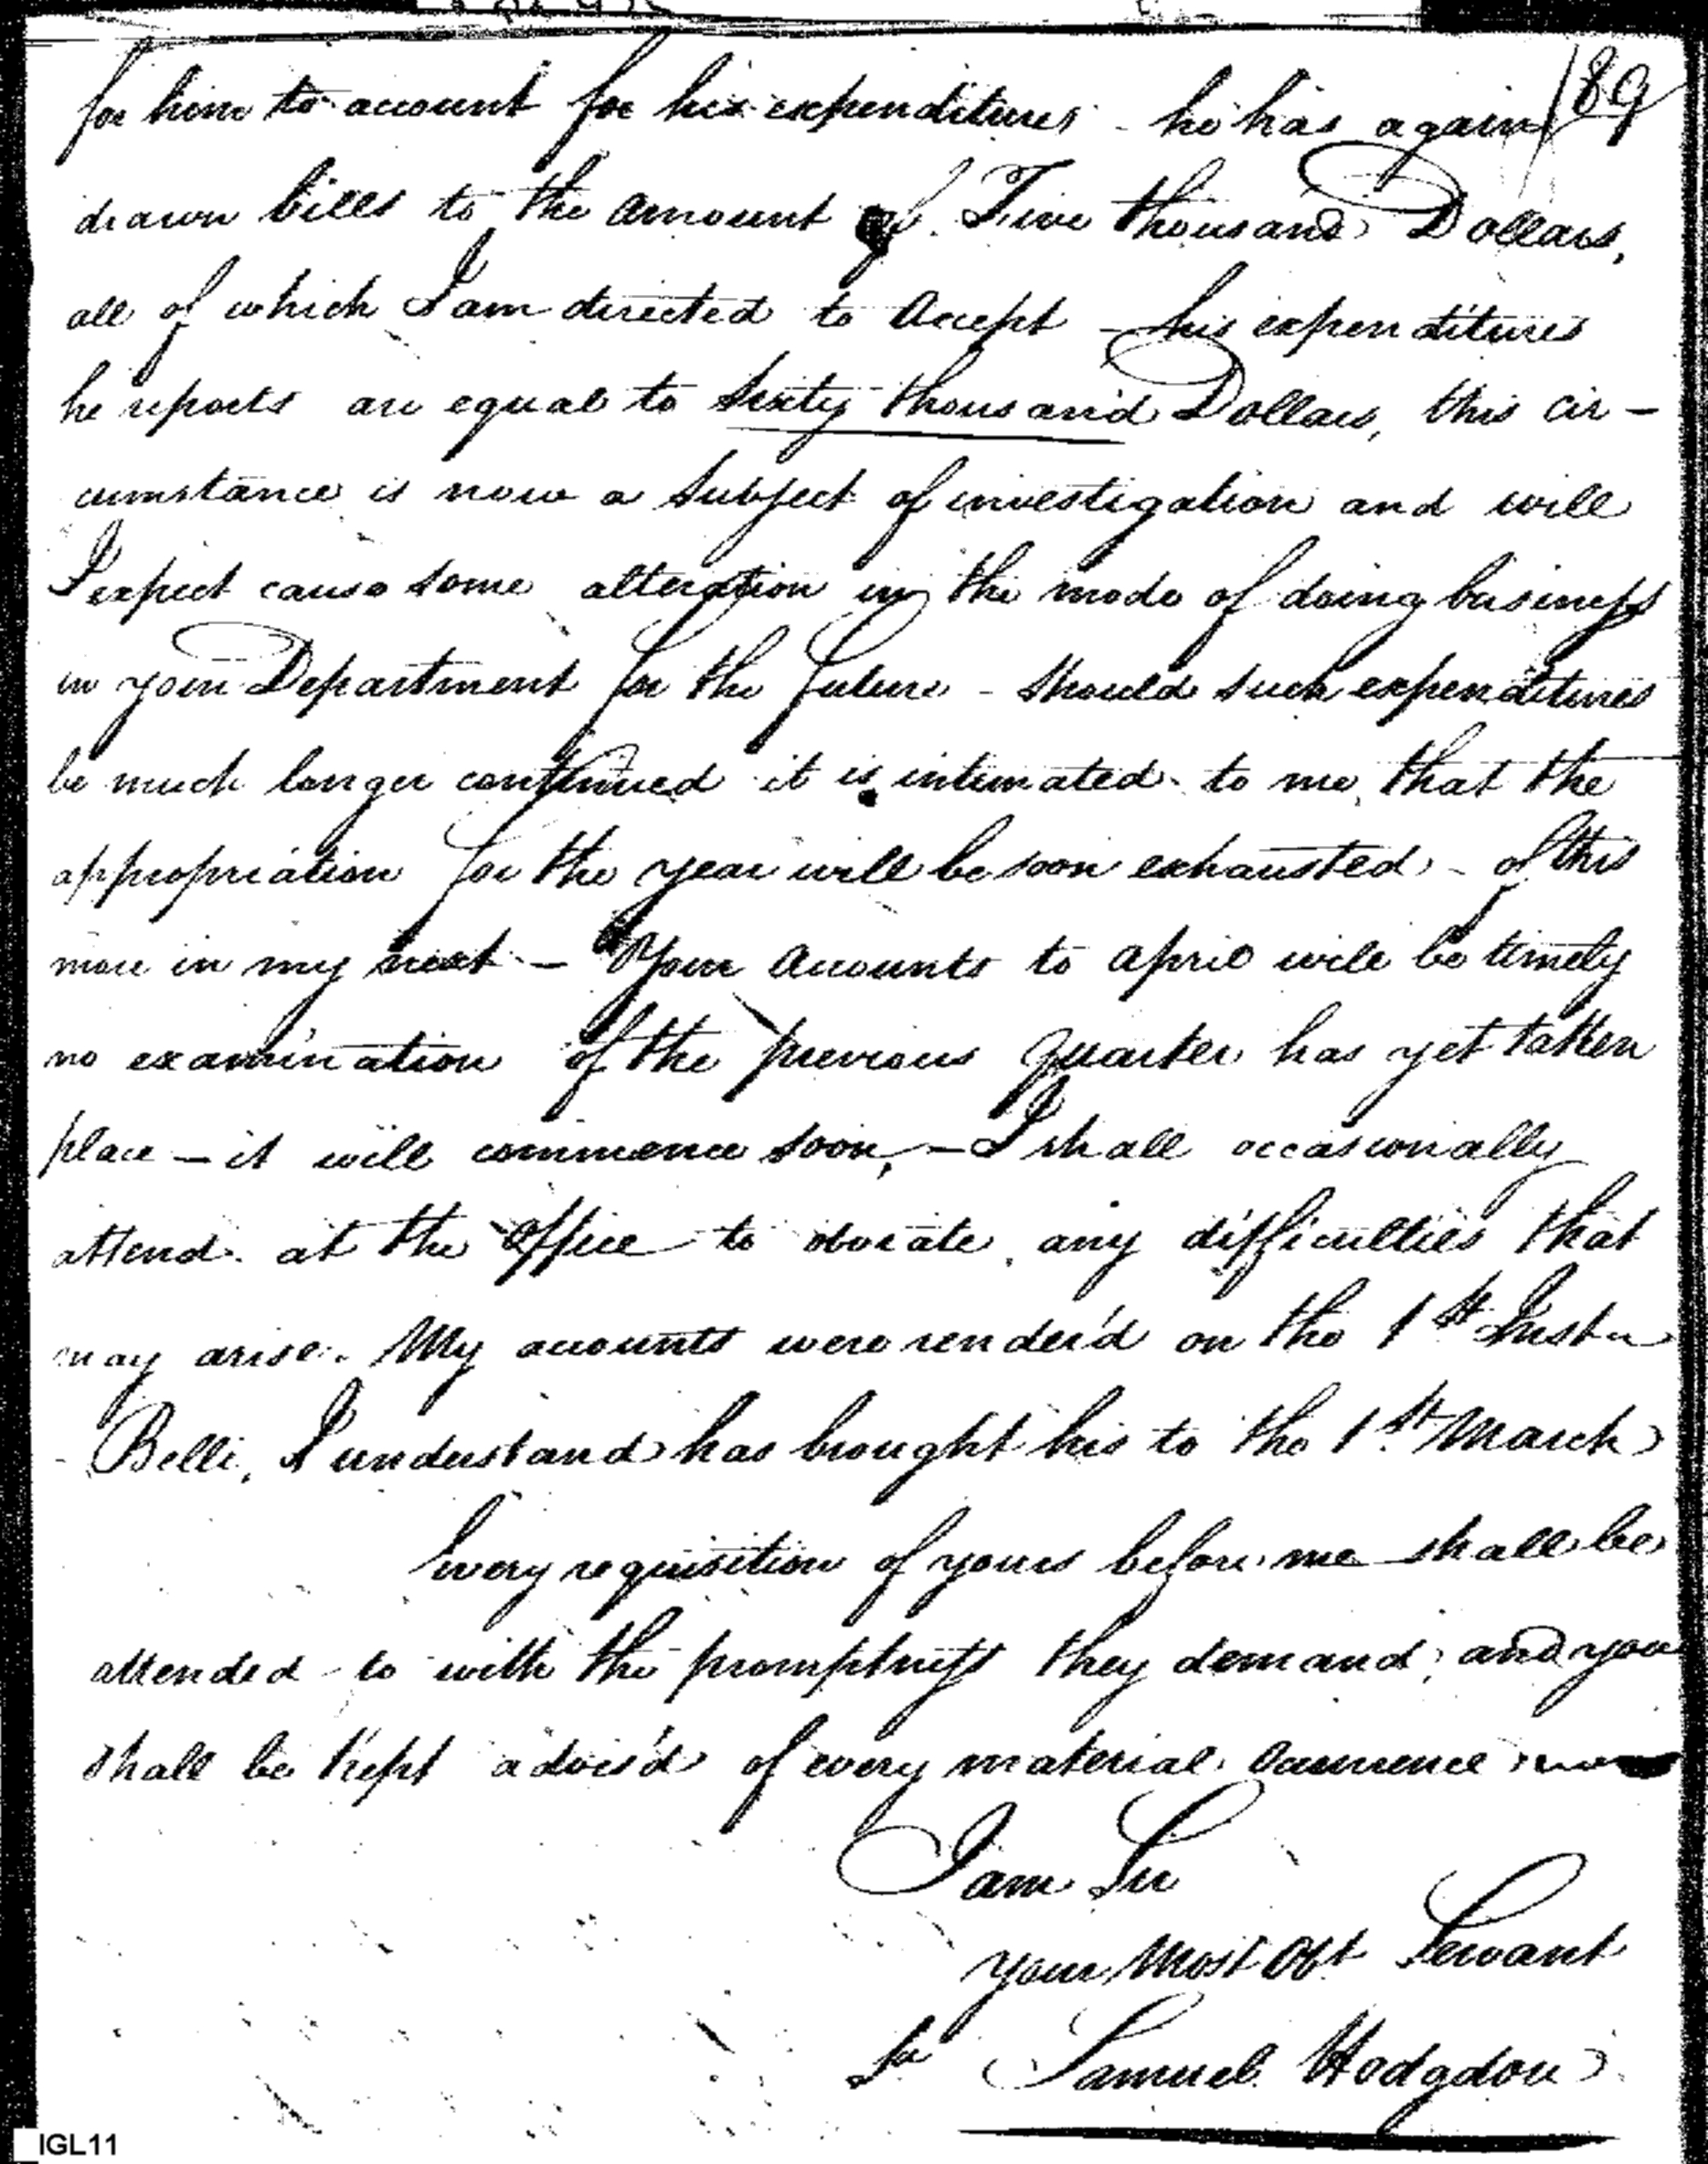 189
for him to account for his expenditures - he has again
drawn bills to the amount of Five thousand Dollars,
all of which I am directed to Accept - his expenditures
he reports are equal to Sixty thousand Dollars, this cir-
cumstance is now a Subject of investigation and will
I expect cause some alteration in the mode of doing business
in your Department for the future - should such expenditures
be much longer continued it is intimated to me, that the
appropriation for the year will be soon exhausted - of this
more in my next - Your Accounts to april will be timely
no examination of the previous quarter has yet taken
place - it will commence soon, - I shall occasionally
attend at the Office to obviate any difficulties that
may arise. My accounts were render'd on the 1st Inst
Belli, I understand has brought his to the 1st March
Every requisition of yours before me shall be
attended to with the promptness they demand, and you
shall be kept advis'd of every material Occurrence
I am Sir
your Most Obt Servant
Samuel Hodgdon
IGL11